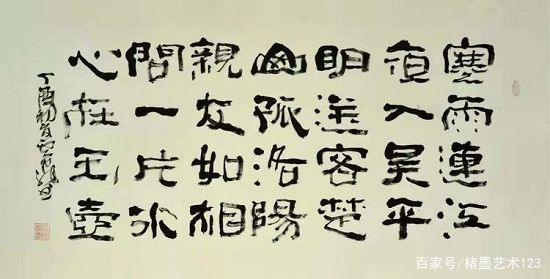 寒雨連江
夜入吴平
明送客楚
山孤洛陽
親友如相
問一片冰
心在玉壺
丁酉初夏
百家号/楮墨艺术123